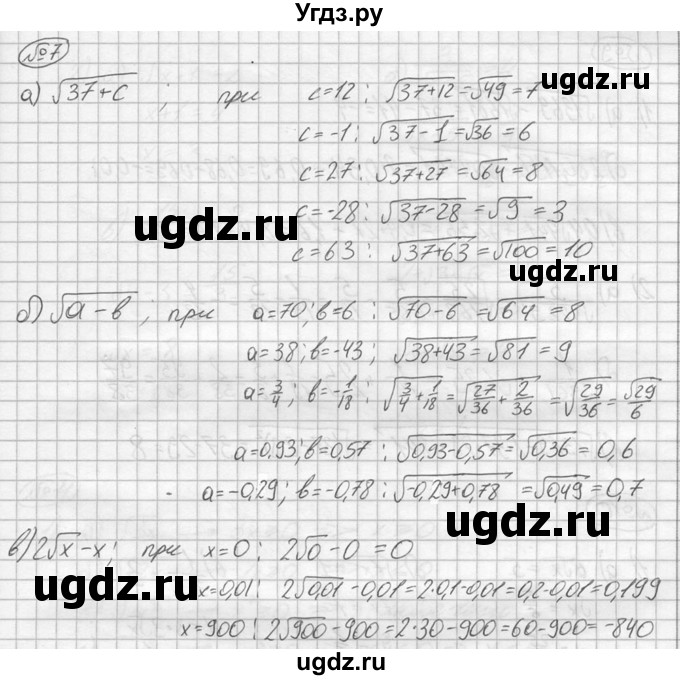 Угдз.ру
№7
а) √(37+c) ; при c=12: √(37+12) = √49 = 7
ugdz.ru
c=-1: √(37-1) = √36 = 6
c=27: √(37+27) = √64 = 8
c=-28: √(37-28) = √9 = 3
ugdz.ru
c=63: √(37+63) = √100 = 10
ugdz.ru
б) √(a-в) ; при a=70; в=6 : √(70-6) = √64 = 8
a=38; в=-43; √(38+43) = √81 = 9
a=3/4; в=-1/18: √(3/4+1/18) = √(27/36+2/36) = √(29/36) = √29/6
ugdz.ru
a=0,93; в=0,57 : √(0,93-0,57) = √0,36 = 0,6
a=-0,29; в=-0,78: √(-0,29+0,78) = √0,49 = 0,7
ugdz.ru
в) 2√x-x; при x=0: 2√0-0=0
x=0,01: 2√0,01-0,01=2·0,1-0,01=0,2-0,01=0,199
ugdz.ru
x=900: 2√900-900=2·30-900=60-900=-840
ugdz.ru